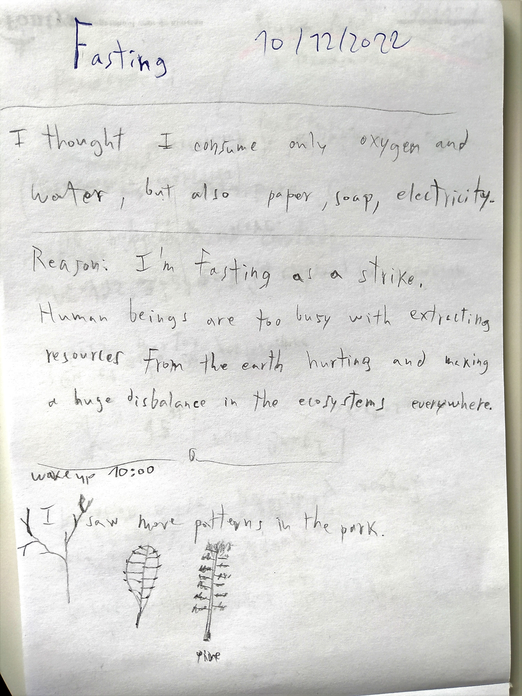 Fasting
10/12/2022
I thought I consume only oxygen and
water, but also paper, soap, electricity.
Reason: I'm Fasting as a strike.
Human beings are too busy with extracting
resources from the earth hurting and making
a huge disbalance in the ecosystems everywhere.
wake up 10:00
I saw more patterns in the park.